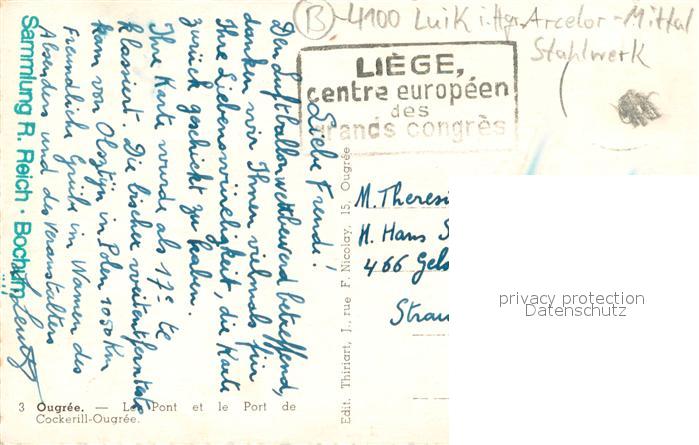 (B) - 4100 Luik i. Hgr. Arcelor-Mittal
Stahlwerk
LIÈGE,
centre européen
des
grands congrès
Liebe Freunde!
Den Luftballonwettbewerb betreffend,
danken wir Ihnen vielmals für
Ihre Liebenswürdigkeit, die Karte
zurück geschickt zu haben.
Ihre Karte wurde als 17e te
klassiert. Die bisher weitentfernteste
kam von Olsztyn in Polen 1050 Km
Freundlich Grüße im Namen des
Absenders und des Veranstalters
Sammlung R. Reich · Bochum
Edit. Thiriart, J., rue F. Nicolay, 15, Ougrée
M. Theresi
H. Hans S
466 Gels
Strau
privacy protection
Datenschutz
3 Ougrée. — Le Pont et le Port de
Cockerill-Ougrée.